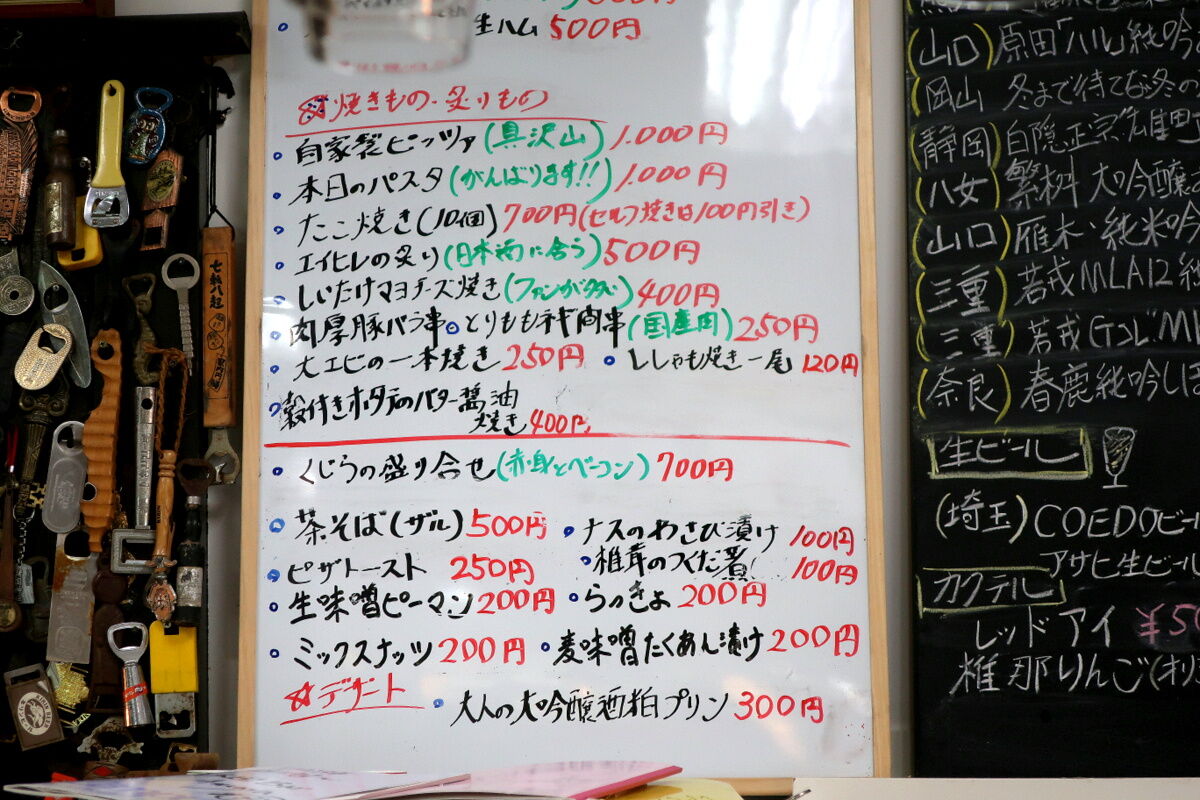 生ハム 500円
☆焼きもの・炙りもの
・自家製ピッツァ(具沢山) 1.000円
・本日のパスタ(がんばります!!) 1.000円
・たこ焼き(10個) 700円(セルフ焼きは100円引き)
・エイヒレの炙り(日本酒に合う) 500円
・しいたけマヨチーズ焼き(ファンが多い) 400円
・肉厚豚バラ串。とりももネギ間串(国産肉) 250円
・大エビの一本焼き 250円 ・ししゃも焼き一尾 120円
・殻付きホタテのバター醤油
焼き 400円
・くじらの盛り合せ(赤身とベーコン) 700円
・茶そば(ザル) 500円 ・ナスのわさび漬け 100円
・ピザトースト 250円 ・椎茸のつくだ煮 100円
・生味噌ピーマン 200円 ・らっきょ 200円
・ミックスナッツ 200円 ・麦味噌たくあん漬け 200円
☆デザート ・大人の大吟醸酒粕プリン 300円
(山口)原田「ハル」純吟
(岡山)冬まで待てない冬の
(静岡)白隠正宗
(八女)繁桝 大吟醸
(山口)雁木・純米吟
(三重)若戎MLA12純
(三重)若戎
(奈良)春鹿純吟しぼ
生ビール
(埼玉)COEDOビー
アサヒ生ビール
カクテル
レッドアイ ¥50
椎那りんご(オリ
七転八起